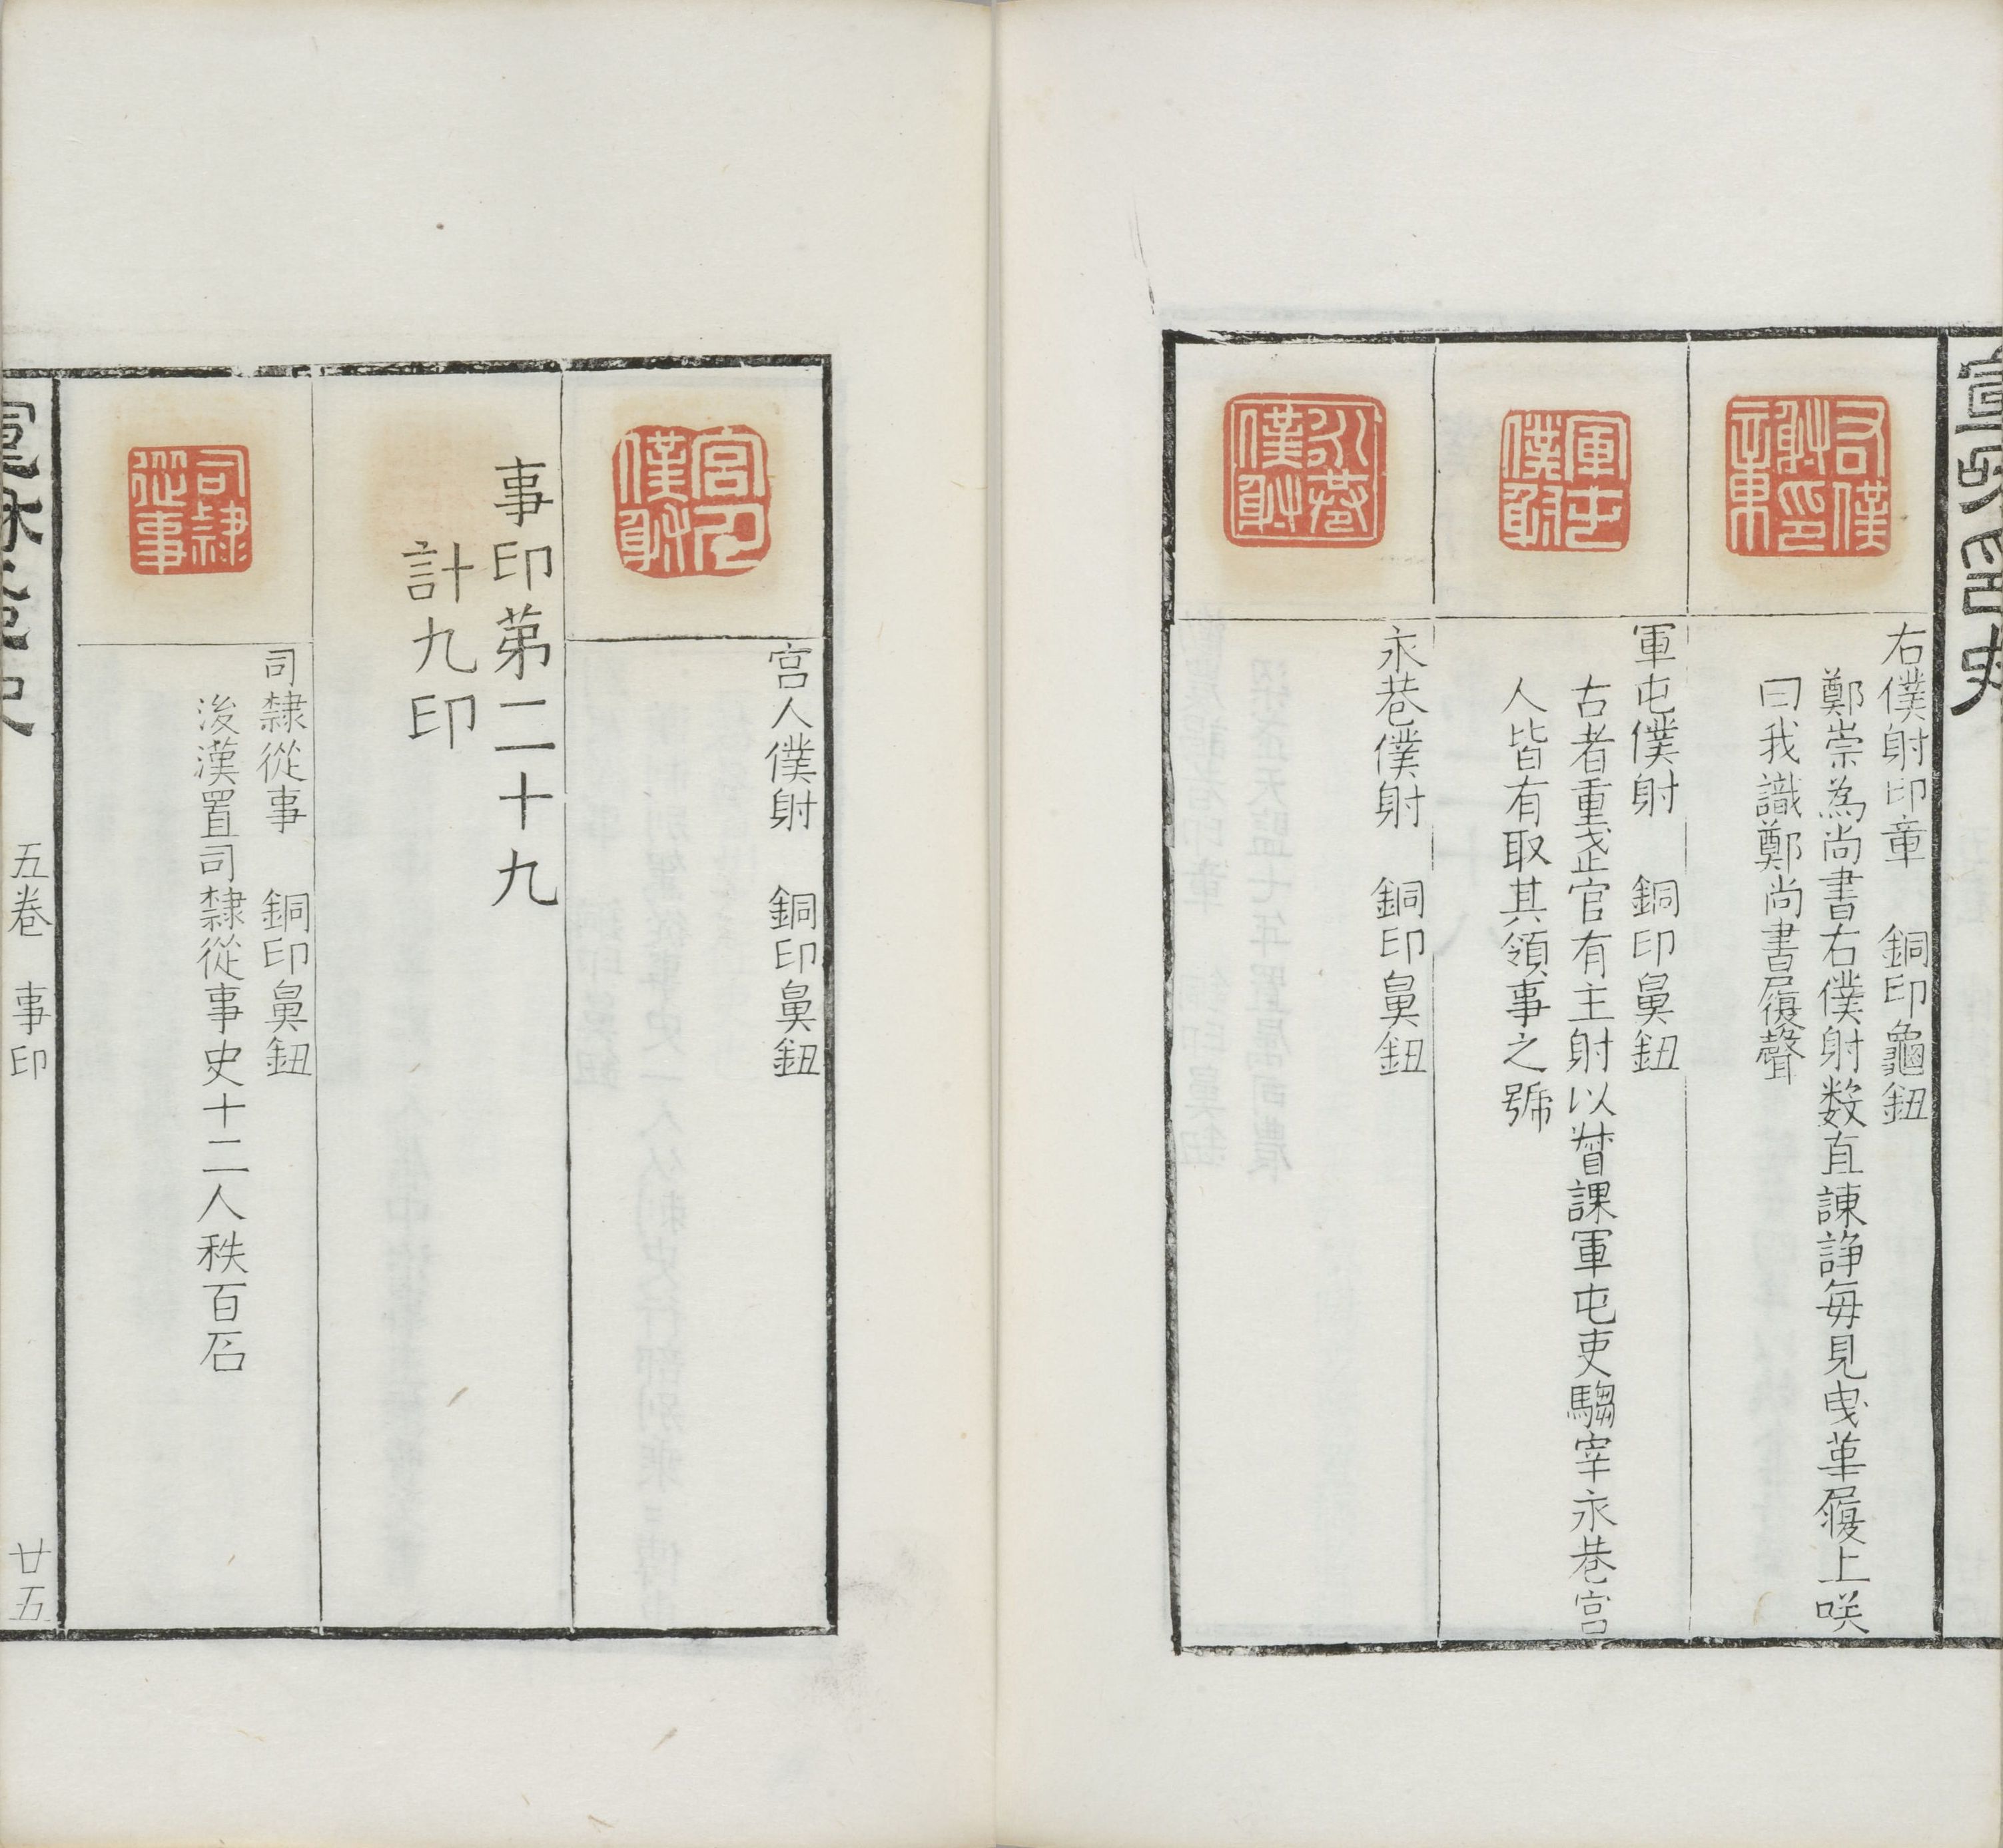 右僕射印章　銅印龜鈕
鄭崇為尚書右僕射数直諫諍每見曳革履上咲
曰我識鄭尚書履聲
軍屯僕射　銅印鼻鈕
古者重武官有主射以督課軍屯吏騶宰永巷宮
人皆有取其領事之號
永巷僕射　銅印鼻鈕
宮人僕射　銅印鼻鈕
事印第二十九
計九印
司隸從事　銅印鼻鈕
後漢置司隸從事史十二人秩百石
五卷　事印
廿五
右僕射印章
軍屯僕射
永巷僕射
宮人僕射
司隸從事